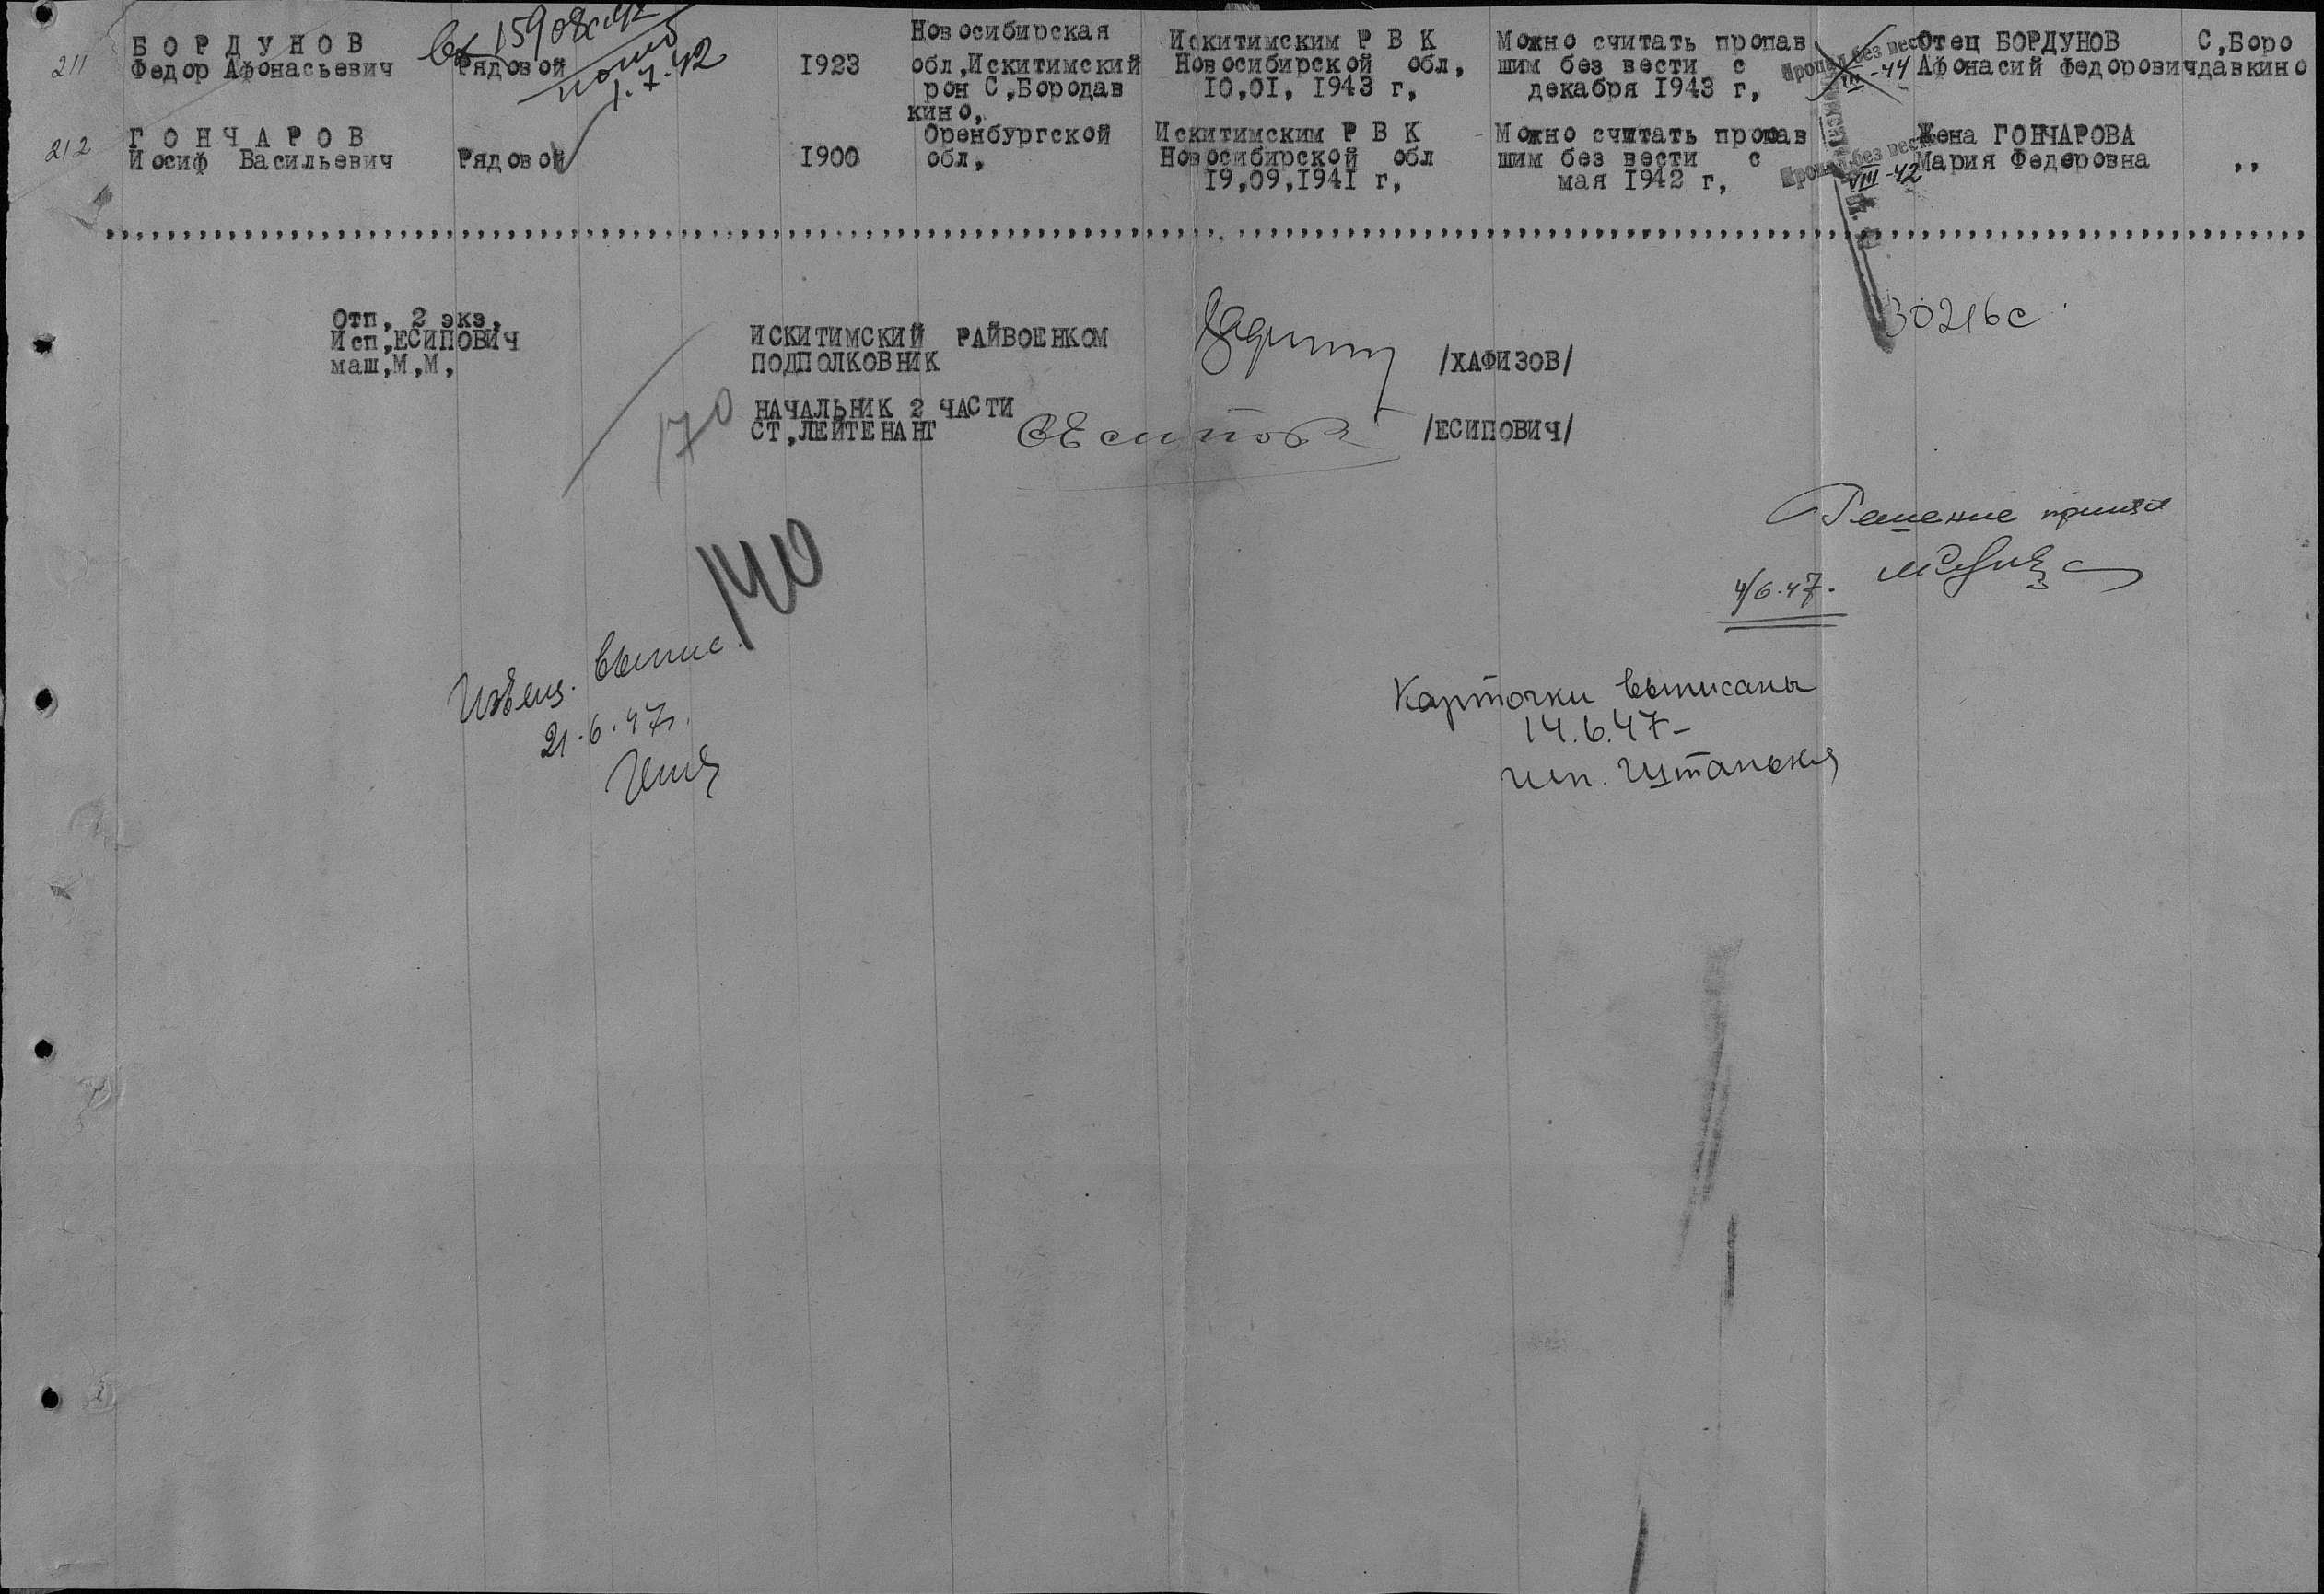 211
БОРДУНОВ
Федор Афонасьевич
Рядовой
вх 15908с-42
погиб
1.7.42
1923
Новосибирская
обл,Искитимский
рон С,Бородав
кино,
Искитимским Р В К
Новосибирской обл,
10,01, 1943 г,
Можно считать пропав
шим без вести с
декабря 1943 г,
Пропал без вести
III-44
Отец БОРДУНОВ
Афонасий Федорович
С,Боро
давкино
212
ГОНЧАРОВ
Иосиф Васильевич
Рядовой
1900
Оренбургской
обл,
Искитимским Р В К
Новосибирской обл
19,09,1941 г,
Можно считать пропав
шим без вести с
мая 1942 г,
Пропал без вести
VIII-42
Жена ГОНЧАРОВА
Мария Федоровна
,,
Отп, 2 экз,
Исп,ЕСИПОВИЧ
маш,М,М,
ИСКИТИМСКИЙ РАЙВОЕНКОМ
ПОДПОЛКОВНИК
/ХАФИЗОВ/
30216с
НАЧАЛЬНИК 2 ЧАСТИ
СТ,ЛЕЙТЕНАНТ
/ЕСИПОВИЧ/
170
140
Решение принял
4/6.47.
Извещ. выпис.
21.6.47г.
Карточки выписаны
14.6.47-